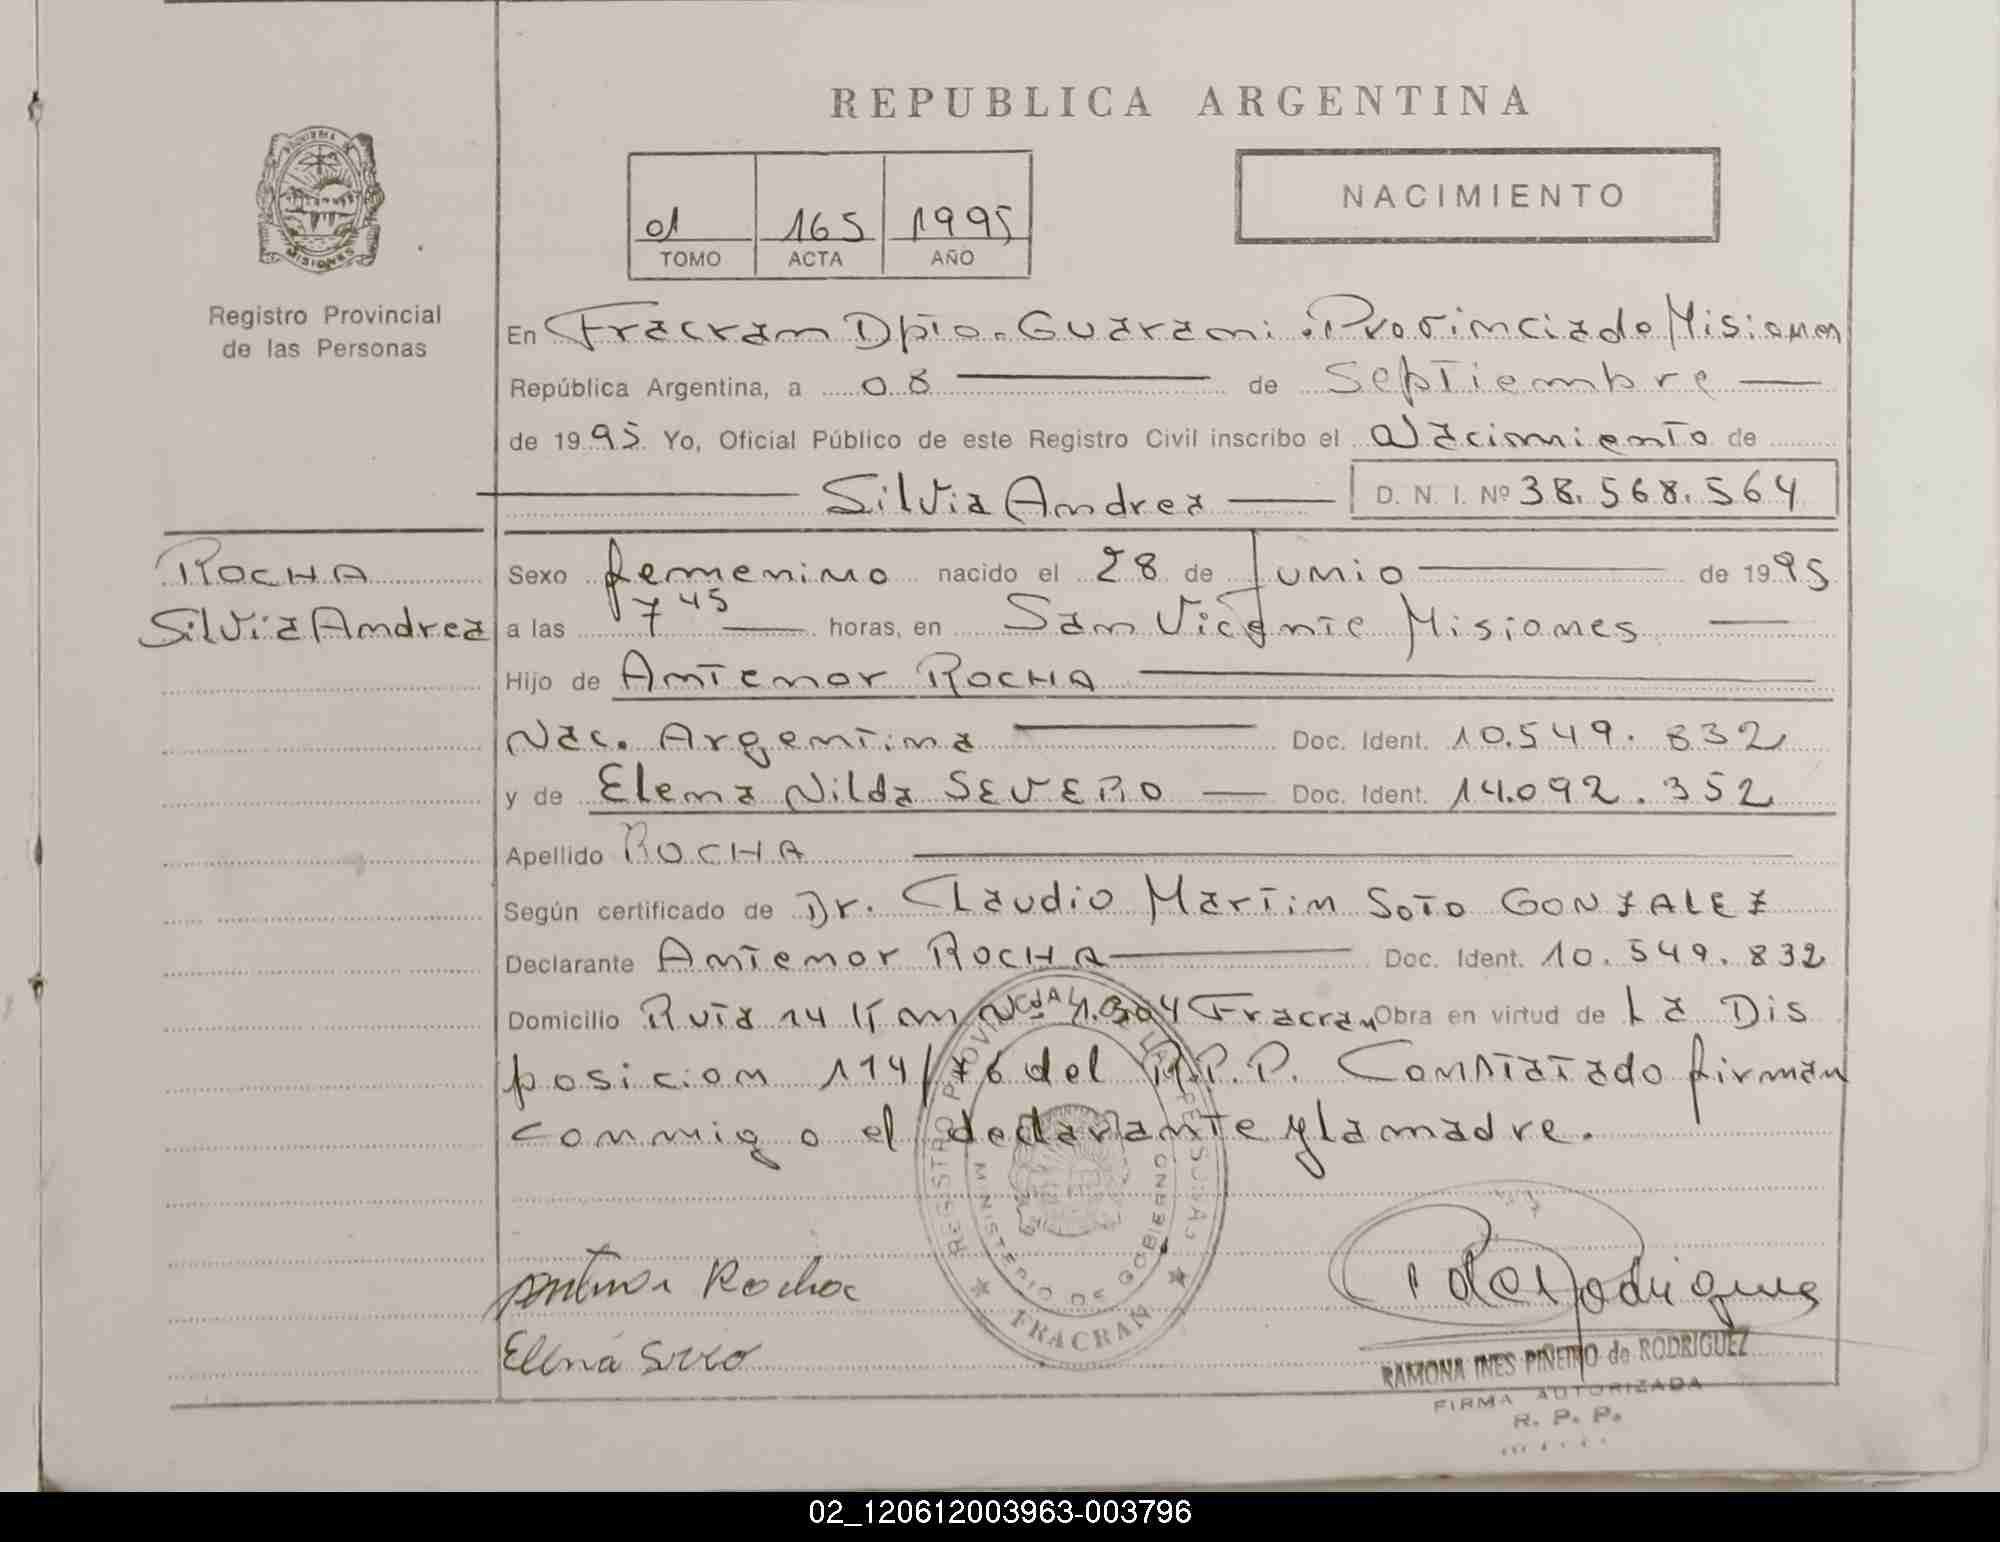 REPUBLICA ARGENTINA
MISIONES
01 165 1995
TOMO ACTA AÑO
NACIMIENTO
Registro Provincial
de las Personas
En Fracran Dpto. Guarani. Provincia de Misiones
República Argentina, a 08 de Septiembre
de 1995 Yo, Oficial Público de este Registro Civil inscribo el Nacimiento de
Silvia Andrea D. N. I. Nº 38.568.564
ROCHA
Silvia Andrea
Sexo femenino nacido el 28 de Junio de 1995
a las 7 45 horas, en San Vicente Misiones
Hijo de Antenor ROCHA
Nac. Argentina Doc. Ident. 10.549.832
y de Elena Nilda SEVERO Doc. Ident. 14.092.352
Apellido ROCHA
Según certificado de Dr. Claudio Martin Soto GONZALEZ
Declarante Antenor ROCHA Doc. Ident. 10.549.832
Domicilio Ruta 14 Km Nº 1.304 Fracran Obra en virtud de La Dis
posicion 114/76 del R.P.P. Constatado firman
conmigo el declarante y la madre.
REGISTRO PROVINCIAL DE LAS PERSONAS
MINISTERIO DE GOBIERNO
FRACRAN
Rocha
Elena
Rodriguez
RAMONA INES PIÑEIRO de RODRIGUEZ
FIRMA AUTORIZADA
R. P. P.
02_120612003963-003796